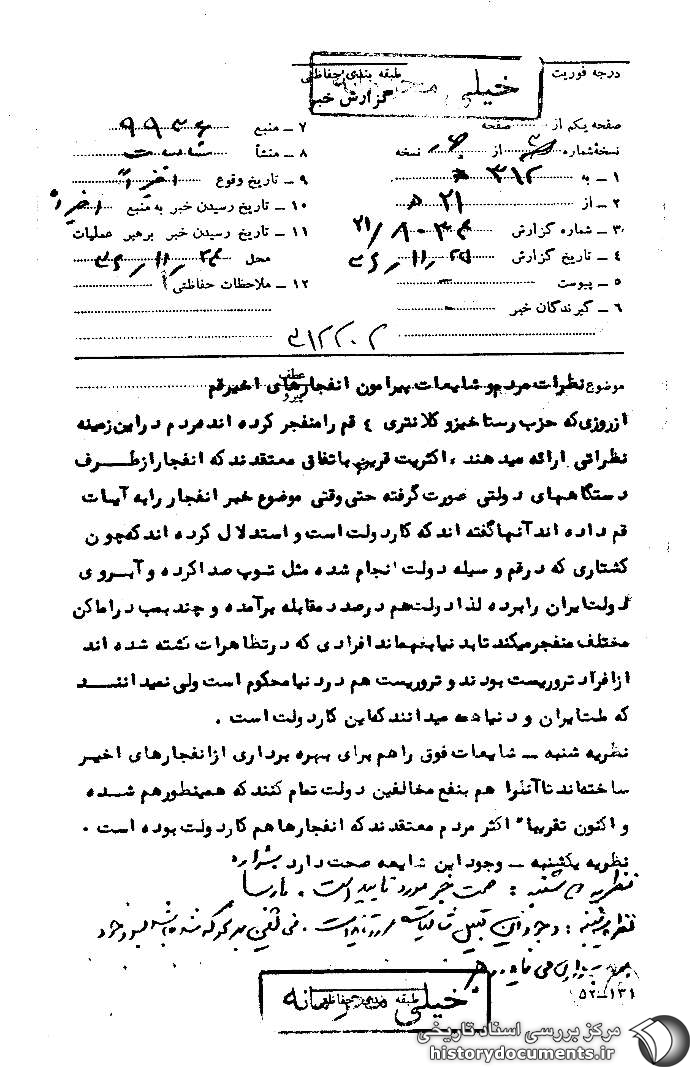 درجه فوریت
طبقه بندی حفاظتی
خیلی محرمانه
گزارش خبر
صفحه یکم از صفحه
نسخه شماره از نسخه
۱ ــ به ۳۱۲
۲ ــ از ۲۱
۳ ــ شماره گزارش ۲۱/
۴ ــ تاریخ گزارش
۵ ــ پیوست
۶ ــ گیرندگان خبر
۷ ــ منبع
۸ ــ منشأ
۹ ــ تاریخ وقوع اخیراً
۱۰ ــ تاریخ رسیدن خبر به منبع اخیراً
۱۱ ــ تاریخ رسیدن خبر برهبر عملیات
محل
۱۲ ــ ملاحظات حفاظتی
موضوع نظرات مردم و شایعات پیرامون انفجارهای اخیر قم
عطف
پیرو
از روزی که حزب رستاخیز و کلانتری ٤ قم را منفجر کرده اند مردم در این زمینه
نظراتی ارائه میدهند ، اکثریت قریب باتفاق معتقدند که انفجار از طرف
دستگاههای دولتی صورت گرفته حتی وقتی موضوع خبر انفجار را به آیات
قم داده اند آنها گفته اند که کار دولت است و استدلال کرده اند که چون
کشتاری که در قم وسیله دولت انجام شده مثل توپ صدا کرده و آبروی
دولت ایران را برده لذا دولت هم درصدد مقابله برآمده و چند بمب در اماکن
مختلف منفجر میکند تا بدنیا بفهماند افرادی که در تظاهرات کشته شده اند
از افراد تروریست بودند و تروریست هم در دنیا محکوم است ولی نمیدانند
که ملت ایران و دنیا همه میدانند که این کار دولت است .
نظریه شنبه ــ شایعات فوق را هم برای بهره برداری از انفجارهای اخیر
ساخته اند تا آنرا هم بنفع مخالفین دولت تمام کنند که همینطور هم شده
و اکنون تقریباً اکثر مردم معتقدند که انفجارها هم کار دولت بوده است .
نظریه یکشنبه ــ وجود این شایعه صحت دارد
نظریه سه شنبه : صحت خبر مورد تایید است . پارسا
وجود این قبیل شایعات
۱۳۱ــ۵۲
طبقه بندی حفاظتی
خیلی محرمانه
مرکز بررسی اسناد تاریخی
historydocuments.ir